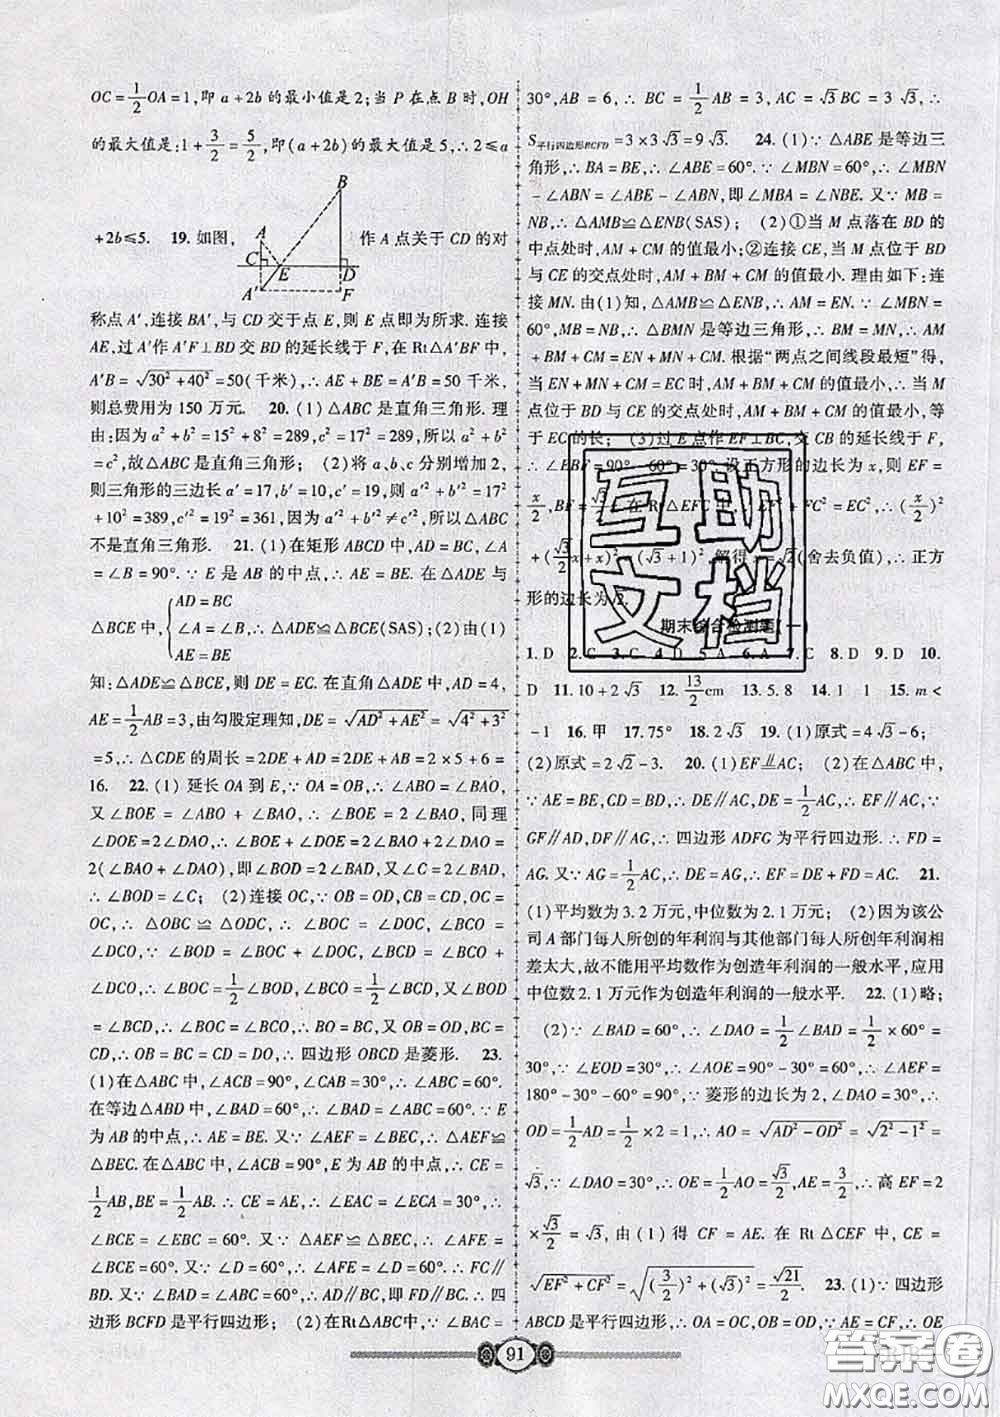 OC=1/2OA=1,即a+2b的最小值是2;当P在点B时,OH
的最大值是:1+3/2=5/2,即(a+2b)的最大值是5,∴2≤a
+2b≤5. 19.如图,
B
A
C
E
D
A′
F
作A点关于CD的对
称点A′,连接BA′,与CD交于点E,则E点即为所求.连接
AE,过A′作A′F⊥BD交BD的延长线于F,在Rt△A′BF中,
A′B=√(30²+40²)=50(千米),∴AE+BE=A′B=50千米,
则总费用为150万元. 20.(1)△ABC是直角三角形.理
由:因为a²+b²=15²+8²=289,c²=17²=289,所以a²+b²
=c²,故△ABC是直角三角形;(2)将a、b、c分别增加2,
则三角形的三边长a′=17,b′=10,c′=19,则a′²+b′²=17²
+10²=389,c′²=19²=361,因为a′²+b′²≠c′²,所以△ABC
不是直角三角形. 21.(1)在矩形ABCD中,AD=BC,∠A
=∠B=90°.∵E是AB的中点,∴AE=BE.在△ADE与
△BCE中,{AD=BC
∠A=∠B,∴△ADE≌△BCE(SAS);(2)由(1)
AE=BE
知:△ADE≌△BCE,则DE=EC.在直角△ADE中,AD=4,
AE=1/2AB=3,由勾股定理知,DE=√(AD²+AE²)=√(4²+3²)
=5,∴△CDE的周长=2DE+AD=2DE+AB=2×5+6=
16. 22.(1)延长OA到E,∵OA=OB,∴∠ABO=∠BAO,
又∠BOE=∠ABO+∠BAO,∴∠BOE=2∠BAO,同理
∠DOE=2∠DAO,∴∠BOE+∠DOE=2∠BAO+2∠DAO=
2(∠BAO+∠DAO),即∠BOD=2∠BAD,又∠C=2∠BAD,
∴∠BOD=∠C;(2)连接OC,∵OB=OD,CB=CD,OC=
OC,∴△OBC≌△ODC,∴∠BOC=∠DOC,∠BCO=
∠DCO,∵∠BOD=∠BOC+∠DOC,∠BCD=∠BCO+
∠DCO,∴∠BOC=1/2∠BOD,∠BCO=1/2∠BCD,又∠BOD
=∠BCD,∴∠BOC=∠BCO,∴BO=BC,又OB=OD,BC=
CD,∴OB=BC=CD=DO,∴四边形OBCD是菱形. 23.
(1)在△ABC中,∠ACB=90°,∠CAB=30°,∴∠ABC=60°.
在等边△ABD中,∠BAD=60°,∴∠BAD=∠ABC=60°.∵E
为AB的中点,∴AE=BE.又∵∠AEF=∠BEC,∴△AEF≌
△BEC.在△ABC中,∠ACB=90°,E为AB的中点,∴CE=
1/2AB,BE=1/2AB.∴CE=AE,∴∠EAC=∠ECA=30°,∴
∠BCE=∠EBC=60°.又∵△AEF≌△BEC,∴∠AFE=
∠BCE=60°.又∵∠D=60°,∴∠AFE=∠D=60°.∴FC∥
BD.又∵∠BAD=∠ABC=60°,∴AD∥BC,即FD∥BC.∴四
边形BCFD是平行四边形;(2)在Rt△ABC中,∵∠BAC=
30°,AB=6,∴BC=1/2AB=3,AC=√3BC=3√3,∴
S平行四边形BCFD=3×3√3=9√3. 24.(1)∵△ABE是等边三
角形,∴BA=BE,∠ABE=60°.∵∠MBN=60°,∴∠MBN
-∠ABN=∠ABE-∠ABN,即∠MBA=∠NBE.又∵MB=
NB,∴△AMB≌△ENB(SAS);(2)①当M点落在BD的
中点处时,AM+CM的值最小;②连接CE,当M点位于BD
与CE的交点处时,AM+BM+CM的值最小.理由如下:连
接MN.由(1)知,△AMB≌△ENB,∴AM=EN.∵∠MBN=
60°,MB=NB,∴△BMN是等边三角形,∴BM=MN,∴AM
+BM+CM=EN+MN+CM.根据“两点之间线段最短”得,
当EN+MN+CM=EC时,AM+BM+CM的值最小,∴当M
点位于BD与CE的交点处时,AM+BM+CM的值最小,等
于EC的长;(3)过E点作EF⊥BC,交CB的延长线于F,
∴∠EBF=90°-60°=30°.设正方形的边长为x,则EF=
x/2,BF=√3/2x.在Rt△EFC中,∵EF²+FC²=EC²,∴(x/2)²
+(√3/2x+x)²=(√3+1)².解得x=√2(舍去负值),∴正方
形的边长为√2.
期末综合检测题(一)
1.D 2.C 3.C 4.D 5.A 6.A 7.C 8.D 9.D 10.
D 11.10+2√3 12.13/2cm 13.5.8 14.1 1 15.m<
-1 16.甲 17.75° 18.2√3 19.(1)原式=4√3-6;
(2)原式=2√3-3. 20.(1)EF∥AC;(2)在△ABC中,
∵AD=BD,BE=CE,∴DE∥AC,DE=1/2AC,∴EF∥AC,∵
GF∥AD,DF∥AG,∴四边形ADFG为平行四边形.∴FD=
AG.又∵AG=1/2AC,∴DE=AG,∴EF=DE+FD=AC. 21.
(1)平均数为3.2万元,中位数为2.1万元;(2)因为该公
司A部门每人所创的年利润与其他部门每人所创年利润相
差太大,故不能用平均数作为创造年利润的一般水平,应用
中位数2.1万元作为创造年利润的一般水平. 22.(1)略;
(2)∵∠BAD=60°,∴∠DAO=1/2∠BAD=1/2×60°=
30°,∵∠EOD=30°,∴∠AOE=90°-30°=60°,∴∠AEF=
180°-30°-60°=90°,∵菱形的边长为2,∠DAO=30°,∴
OD=1/2AD=1/2×2=1,∴AO=√(AD²-OD²)=√(2²-1²)=
√3,∵∠DAO=30°,∴OE=1/2AO=√3/2,AE=3/2,∴高EF=2
×√3/2=√3,由(1)得CF=AE.在Rt△CEF中,CE=
√(EF²+CF²)=√((3/2)²+(√3)²)=√21/2. 23.(1)∵四边形
ABCD是平行四边形,∴OA=OC,OB=OD,∵AE=CF,∴OE
91
互助
文档
答案圈
MXQE.COM